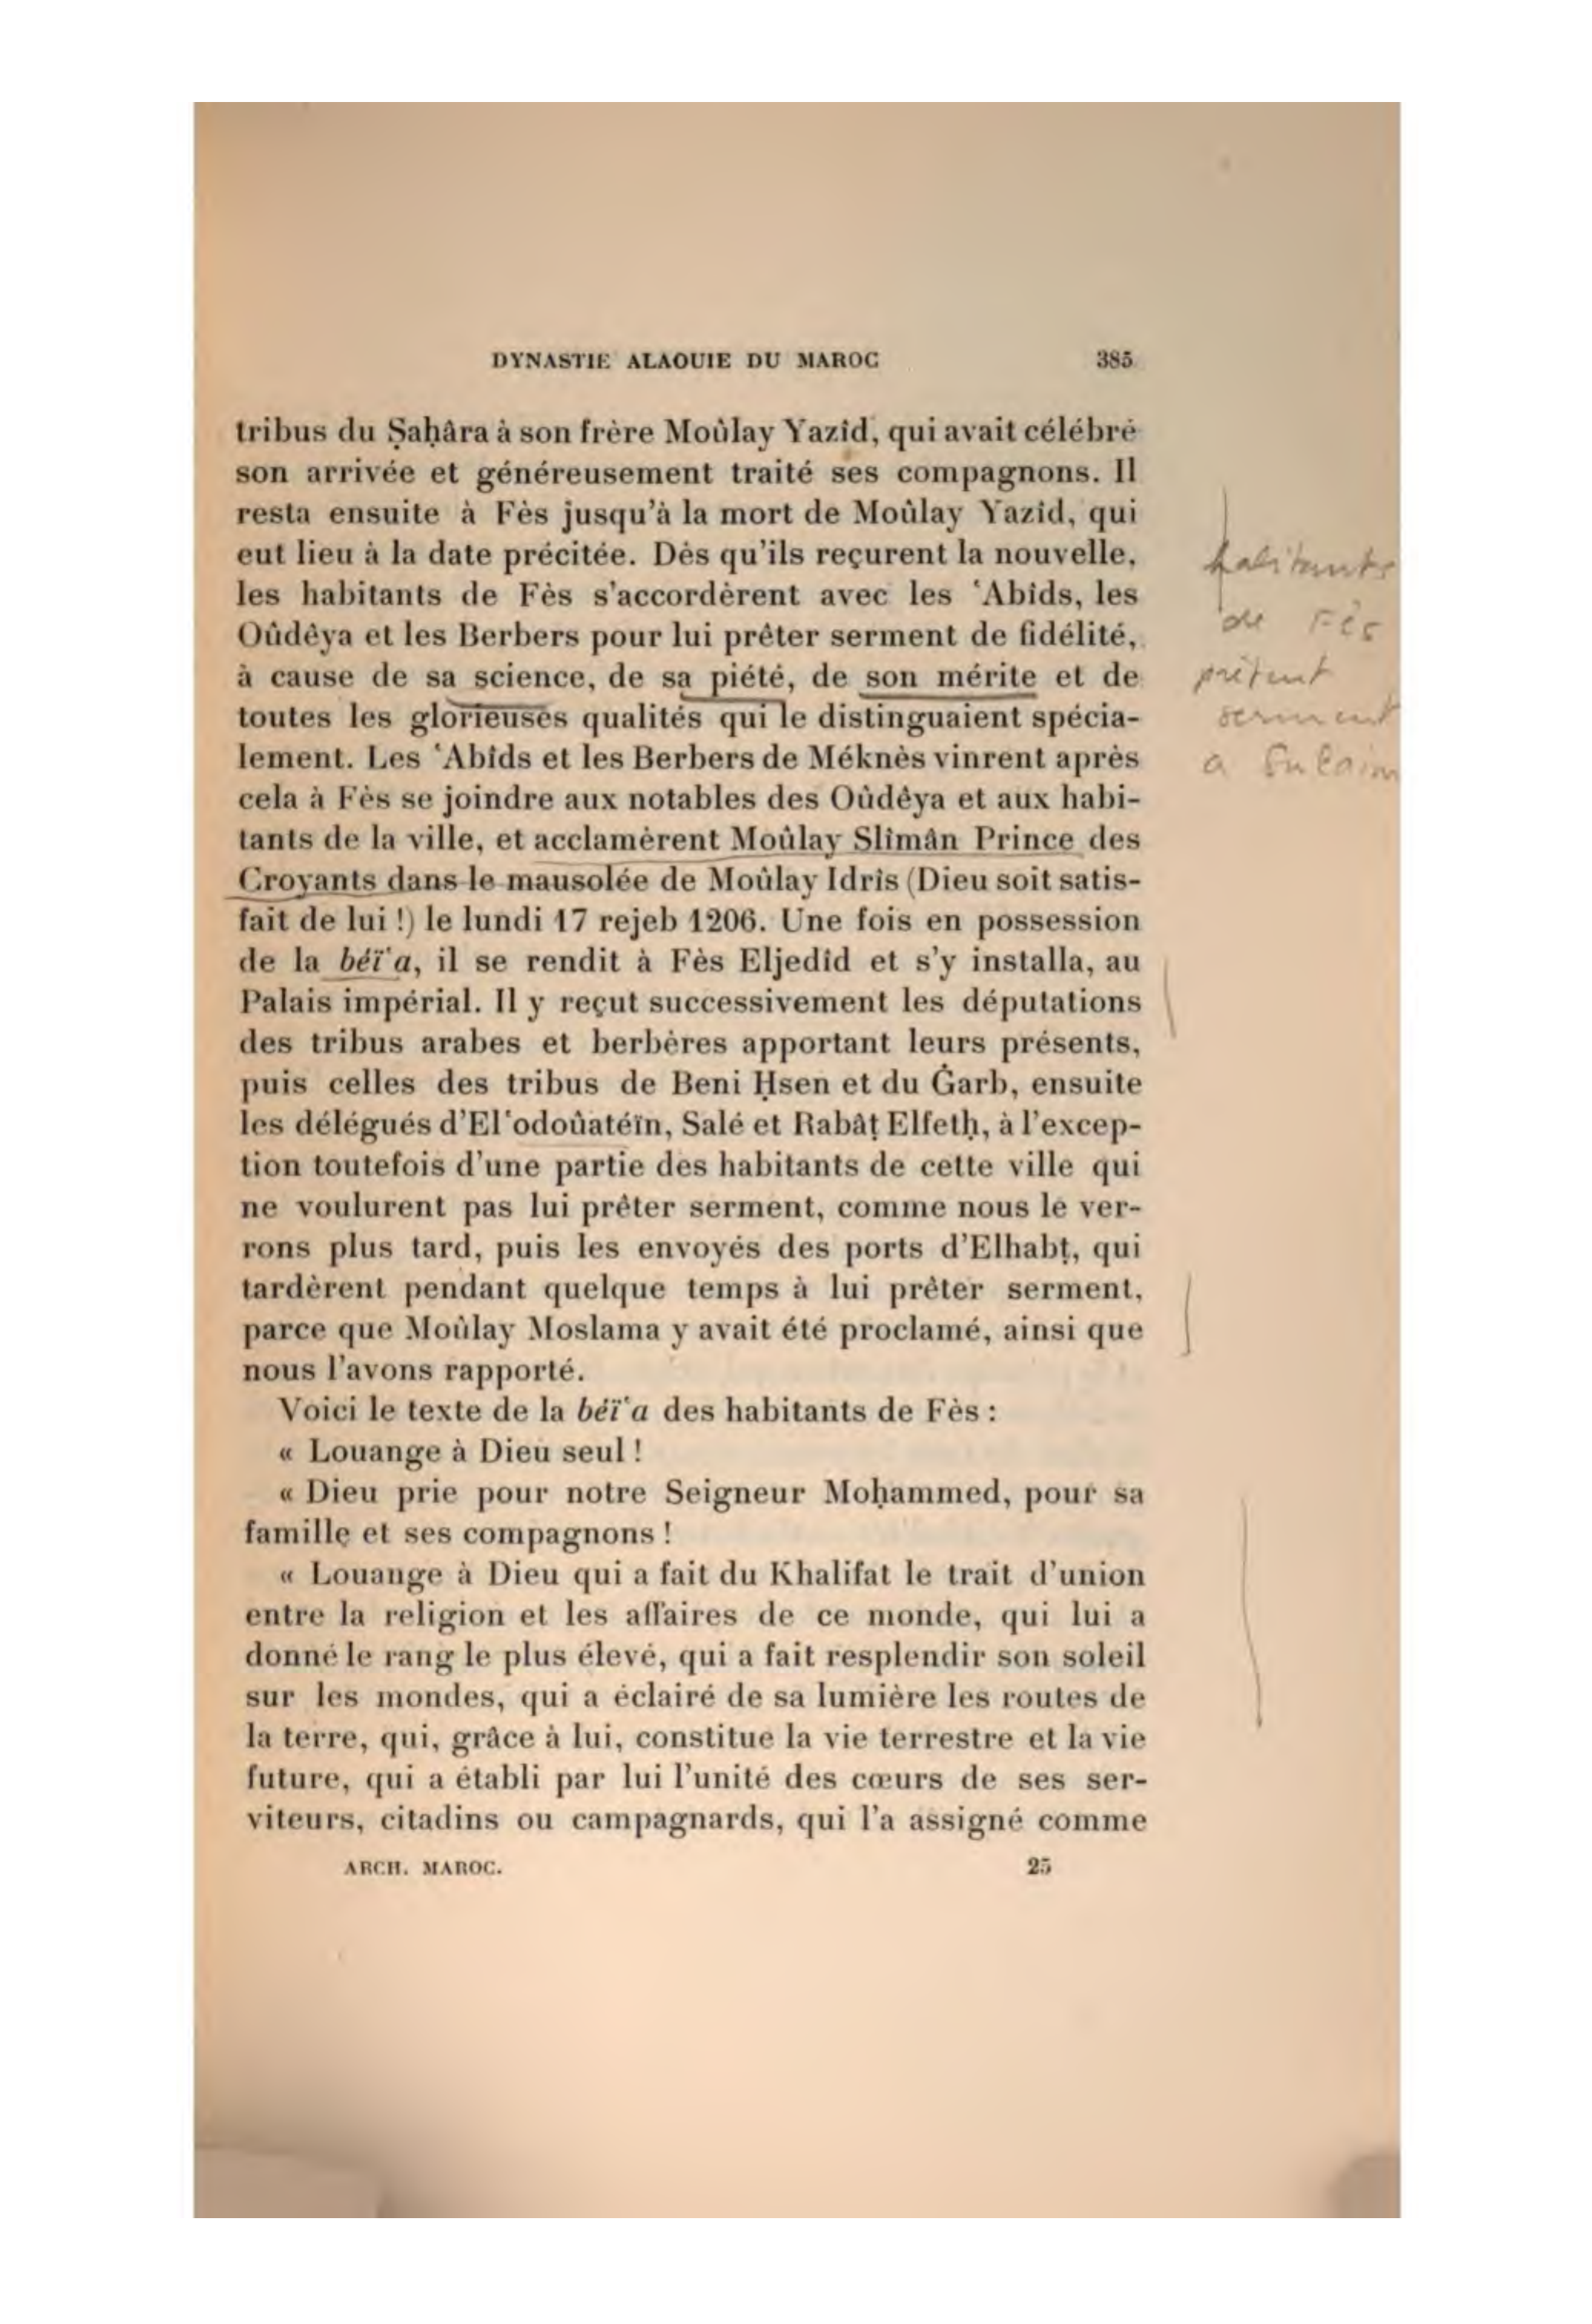 DYNASTIE ALAOUIE DU MAROC 385
tribus du Ṣaḥâra à son frère Moûlay Yazîd, qui avait célébré
son arrivée et généreusement traité ses compagnons. Il
resta ensuite à Fès jusqu'à la mort de Moûlay Yazîd, qui
eut lieu à la date précitée. Dès qu'ils reçurent la nouvelle,
les habitants de Fès s'accordèrent avec les ʿAbîds, les
Oûdêya et les Berbers pour lui prêter serment de fidélité,
à cause de sa science, de sa piété, de son mérite et de
toutes les glorieuses qualités qui le distinguaient spécia-
lement. Les ʿAbîds et les Berbers de Méknès vinrent après
cela à Fès se joindre aux notables des Oûdêya et aux habi-
tants de la ville, et acclamèrent Moûlay Slîmân Prince des
Croyants dans le mausolée de Moûlay Idrîs (Dieu soit satis-
fait de lui !) le lundi 17 rejeb 1206. Une fois en possession
de la béïʿa, il se rendit à Fès Eljedîd et s'y installa, au
Palais impérial. Il y reçut successivement les députations
des tribus arabes et berbères apportant leurs présents,
puis celles des tribus de Beni Ḥsen et du Ġarb, ensuite
les délégués d'Elʿodoûatéïn, Salé et Rabâṭ Elfetḥ, à l'excep-
tion toutefois d'une partie des habitants de cette ville qui
ne voulurent pas lui prêter serment, comme nous le ver-
rons plus tard, puis les envoyés des ports d'Elhabṭ, qui
tardèrent pendant quelque temps à lui prêter serment,
parce que Moûlay Moslama y avait été proclamé, ainsi que
nous l'avons rapporté.
Voici le texte de la béïʿa des habitants de Fès :
« Louange à Dieu seul !
« Dieu prie pour notre Seigneur Moḥammed, pour sa
famille et ses compagnons !
« Louange à Dieu qui a fait du Khalifat le trait d'union
entre la religion et les affaires de ce monde, qui lui a
donné le rang le plus élevé, qui a fait resplendir son soleil
sur les mondes, qui a éclairé de sa lumière les routes de
la terre, qui, grâce à lui, constitue la vie terrestre et la vie
future, qui a établi par lui l'unité des cœurs de ses ser-
viteurs, citadins ou campagnards, qui l'a assigné comme
ARCH. MAROC. 25
habitants
de Fès
prêtent
serment
a